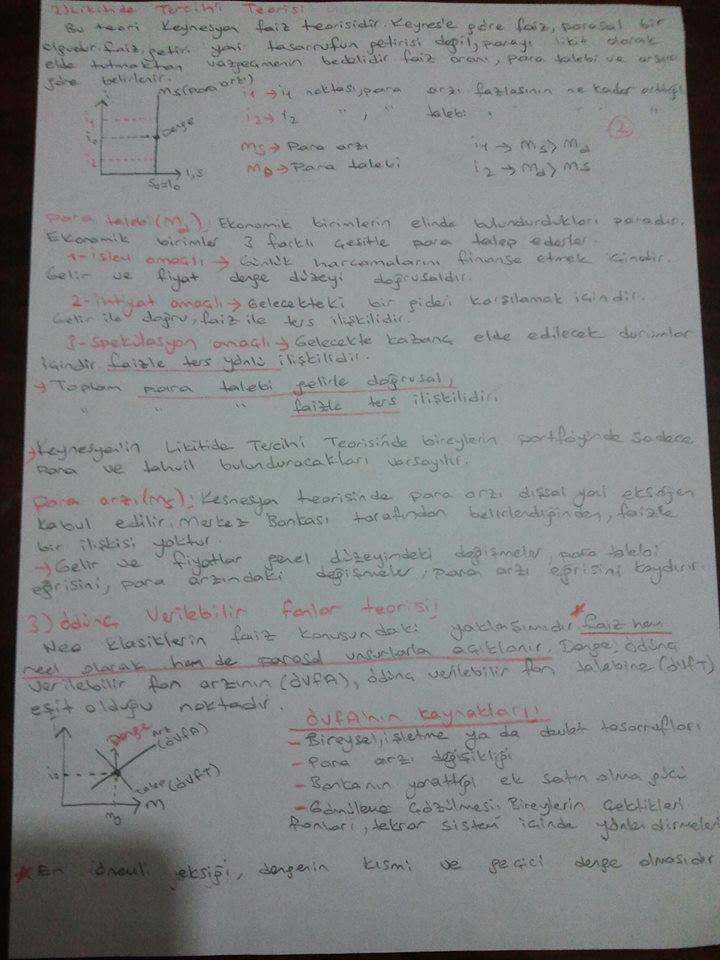 2) Likitide Tercihi Teorisi
Bu teori Keynesyen faiz teorisidir. Keynes'e göre faiz, parasal bir
olgudur. faiz, getiri yani tasarrufun getirisi değil, parayı likit olarak
elde tutmaktan vazgeçmenin bedelidir faiz oranı, para talebi ve arzına
göre belirlenir.
Ms (para arzı)
i1 → i1 noktası, para arzı fazlasının ne kadar
i2 → i2 " , " talebi " "
i1
i0
i2
Denge
I, S
S0=I0
2
Ms → Para arzı
MD → Para talebi
i1 → Ms > Md
i2 → Md > Ms
Para talebi (Md): Ekonomik birimlerin elinde bulundurdukları paradır.
Ekonomik birimler 3 farklı çeşitle para talep ederler.
1- işlem amaçlı → Günlük harcamalarını finanse etmek içindir.
Gelir ve fiyat denge düzeyi doğrusaldır.
2- ihtiyat amaçlı → Gelecekteki bir gideri karşılamak içindir.
Gelir ile doğru, faiz ile ters ilişkilidir.
3- Spekülasyon amaçlı → Gelecekte kazanç elde edilecek durumlar
içindir faizle ters yönlü ilişkilidir.
→ Toplam para talebi gelirle doğrusal,
" " " faizle ters ilişkilidir.
→ Keynesyen'in Likitide Tercihi Teorisinde bireylerin portföyinde sadece
para ve tahvil bulunduracakları varsayılır.
Para arzı (Ms): Kesnesyen teorisinde para arzı dışsal yani eksojen
kabul edilir. Merkez Bankası tarafından belirlendiğinden, faizle
bir ilişkisi yoktur.
→ Gelir ve fiyatlar genel düzeyindeki değişmeler, para talebi
eğrisini, para arzındaki değişmeler, para arzı eğrisini kaydırır.
3) Ödünç Verilebilir fonlar teorisi!
Neo klasiklerin faiz konusundaki yaklaşımıdır. * faiz hem
reel olarak hem de parasal unsurlarla açıklanır. Denge; ödünç
verilebilir fon arzının (ÖVFA), ödünç verilebilir fon talebine (ÖVFT)
eşit olduğu noktadır.
i
Denge
Arz (ÖVFA)
i0
Talep (ÖVFT)
M
M0
ÖVFA'nın kaynakları;
- Bireysel, işletme ya da devlet tasarrufları
- Para arzı değişikliği
- Bankanın yarattığı ek satın alma gücü
- Gömüleme Çözülmesi: Bireylerin Çektikleri
fonları, tekrar sistem içinde yönlendirmeleri
* En önemli eksiği, dengenin kısmi ve geçici denge olmasıdır